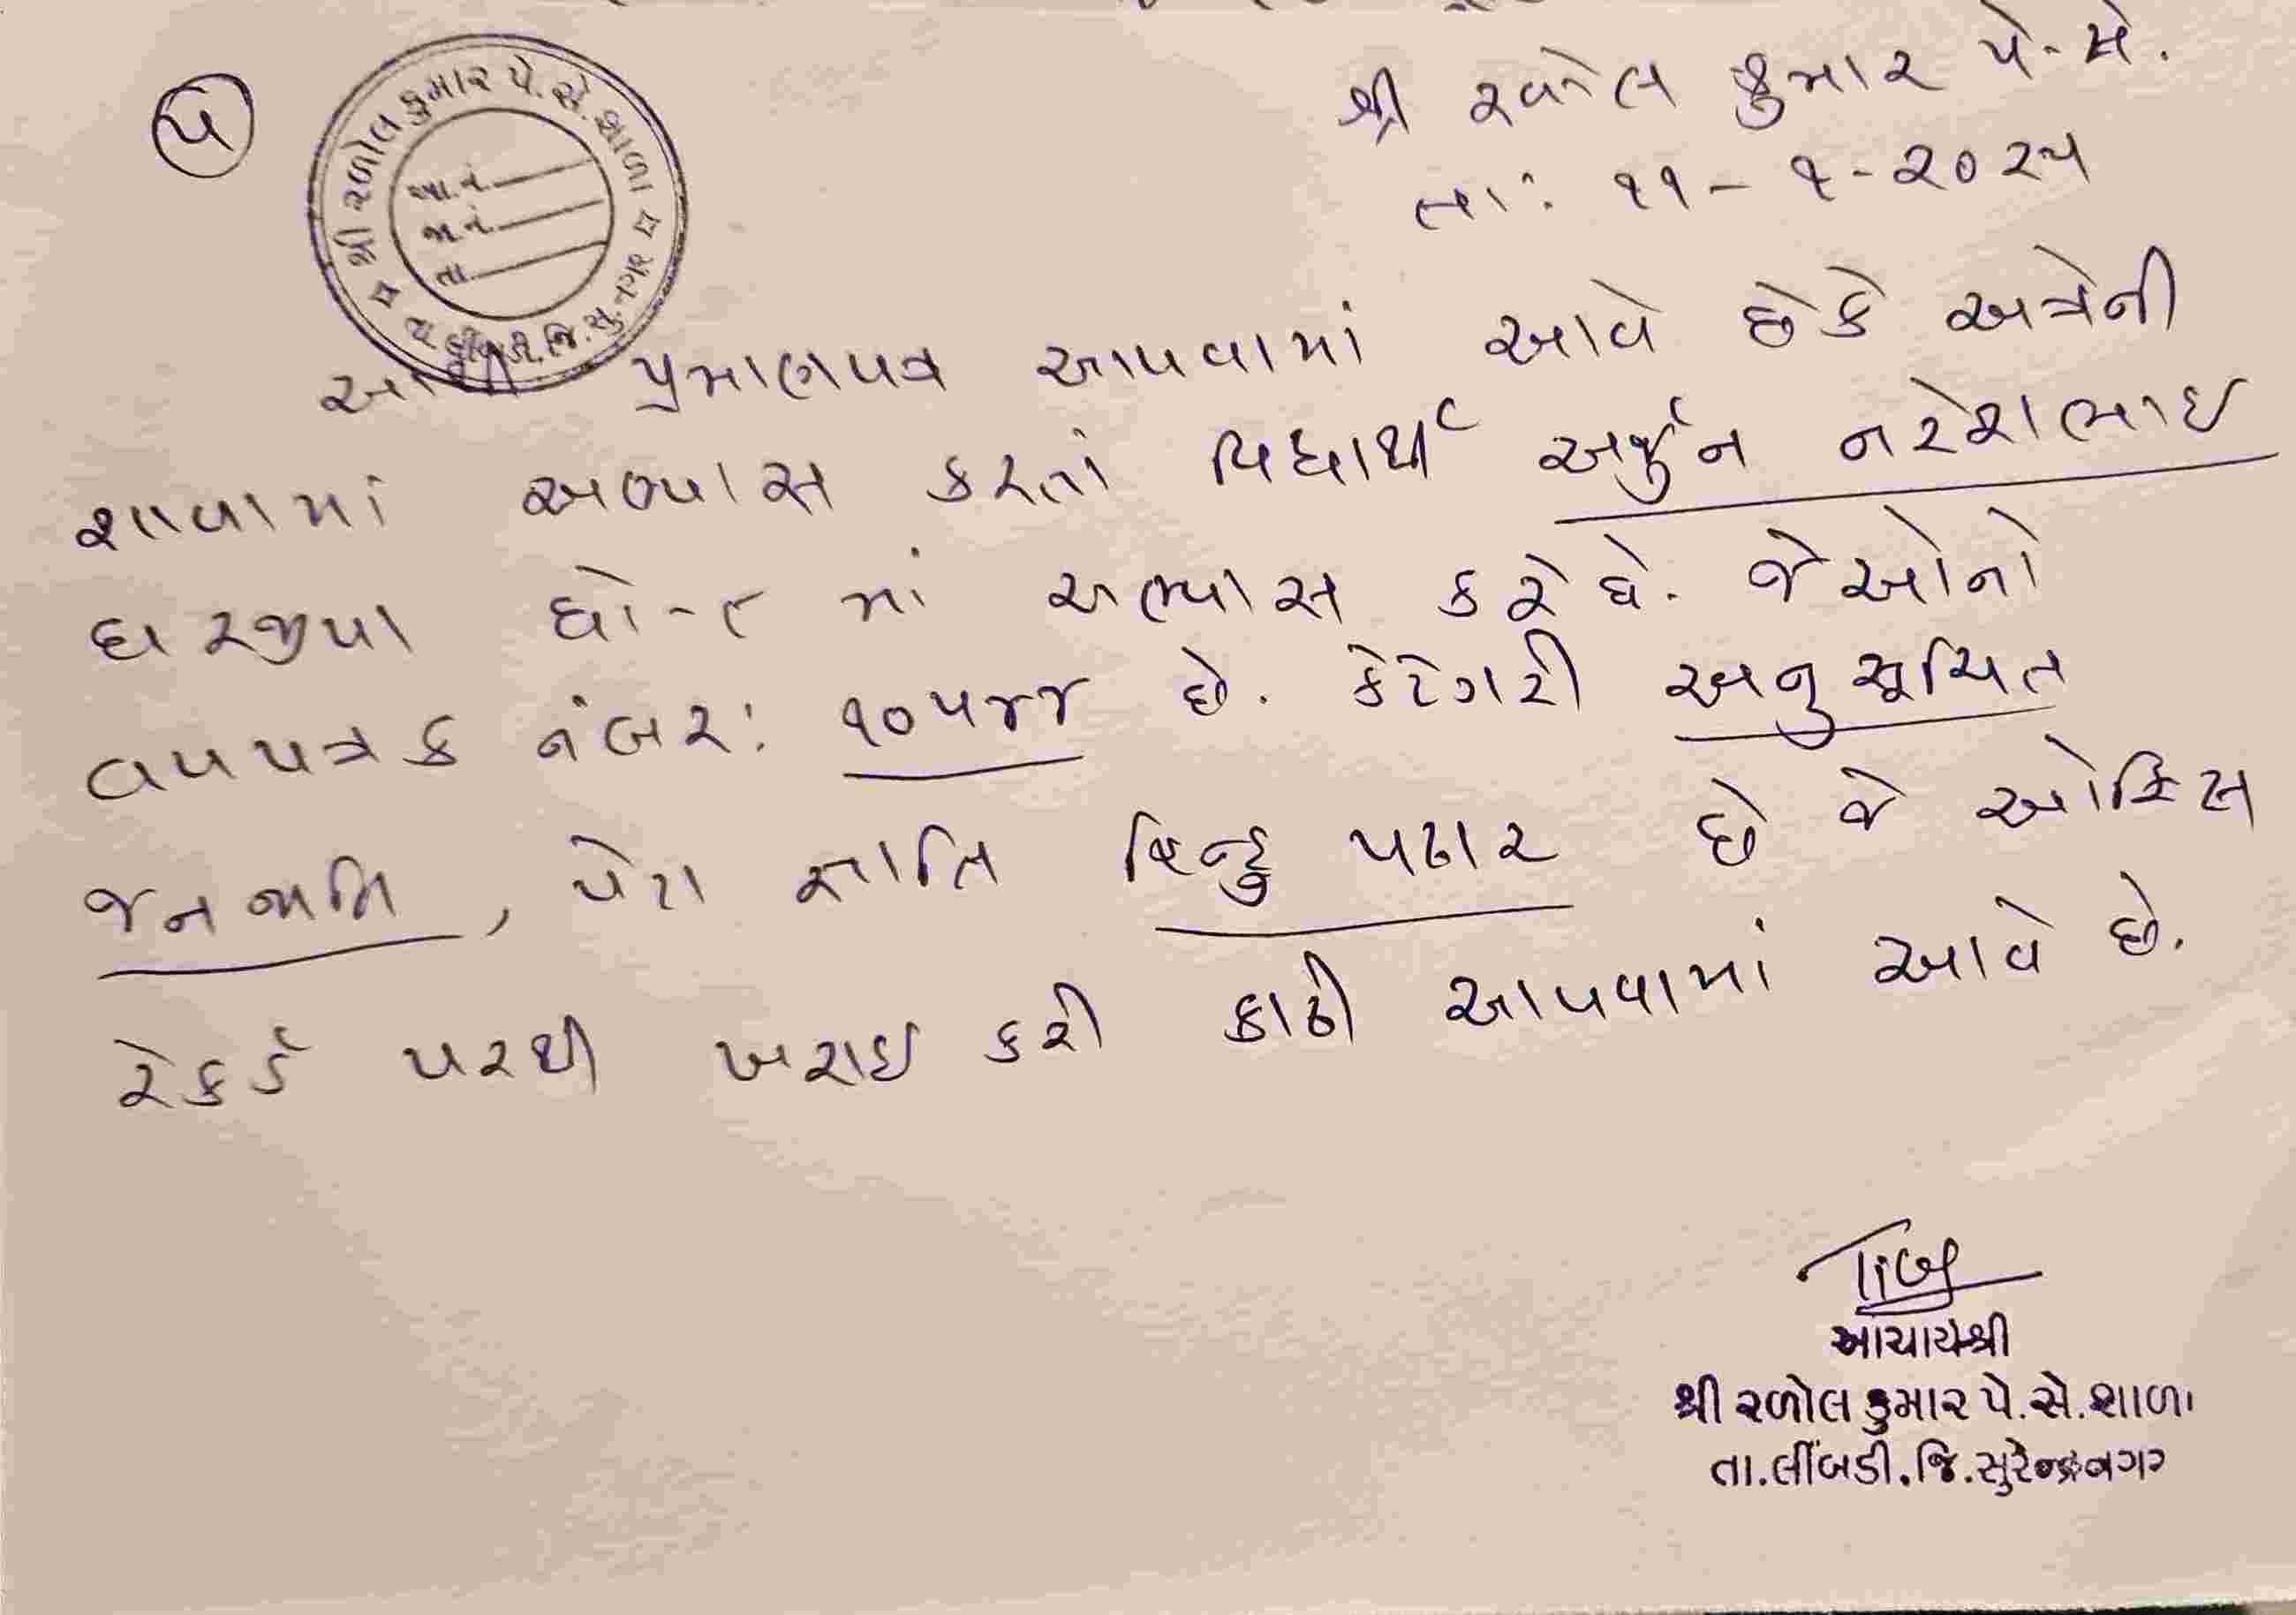 ૫
શ્રી રળોલ કુમાર પે. સે. શાળા
આ.નં.
જા.નં.
તા.
તા. લીંબડી. જિ. સુ.નગર
શ્રી રળોલ કુમાર પે. સે.
તા: ૧૧-૧-૨૦૨૫
આથી પ્રમાણપત્ર આપવામાં આવે છે કે અત્રેની
શાળામાં અભ્યાસ કરતાં વિદ્યાર્થી અર્જુન નરેશભાઇ
ધારજીયા ધો-૮ માં અભ્યાસ કરે છે. જેઓનો
વયપત્રક નંબર: ૧૦૫૪૪ છે. કેટેગરી અનુસૂચિત
જનજાતિ, પેટા જ્ઞાતિ હિન્દુ પઢાર છે જે ઓફિસ
રેકર્ડ પરથી ખરાઇ કરી કાઢી આપવામાં આવે છે.
આચાર્યશ્રી
શ્રી રળોલ કુમાર પે.સે.શાળા
તા.લીંબડી.જિ.સુરેન્દ્રનગર